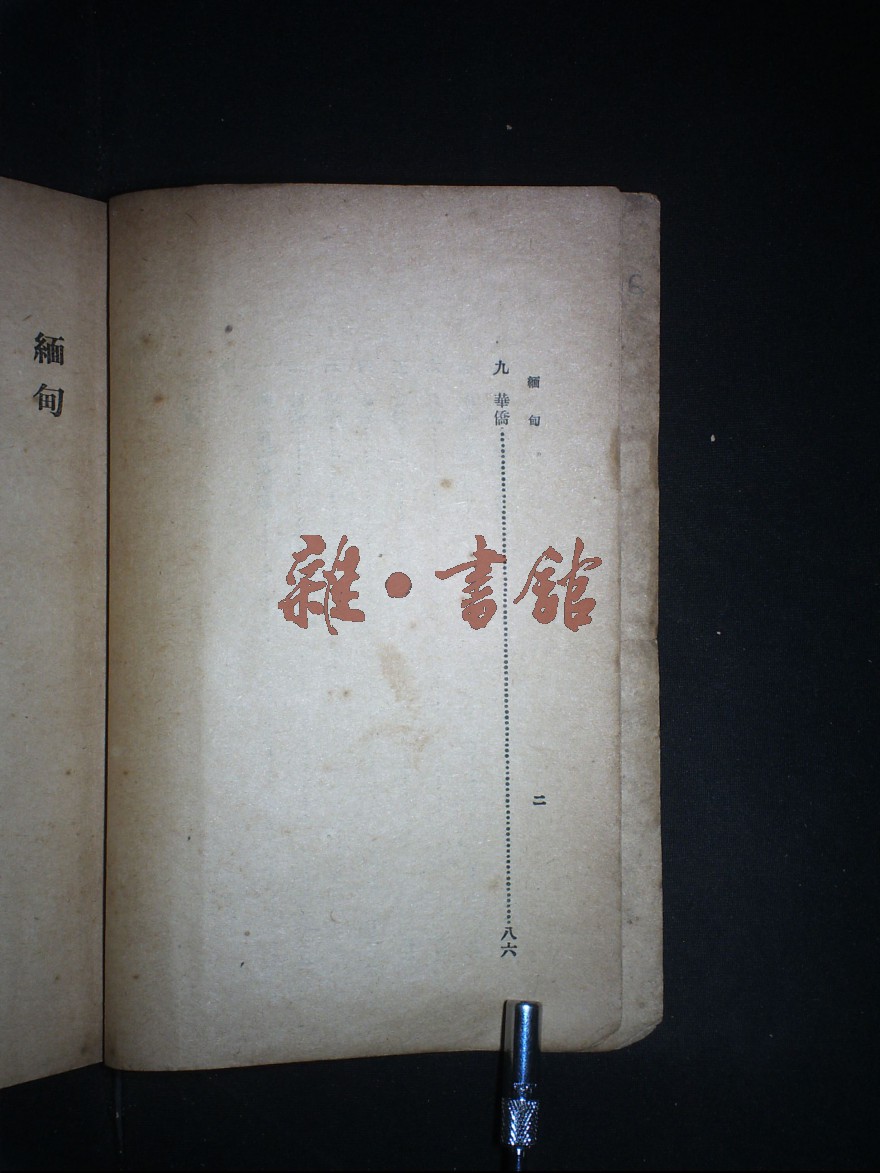 緬甸
二
九 華僑……八六
緬甸
雜·書館